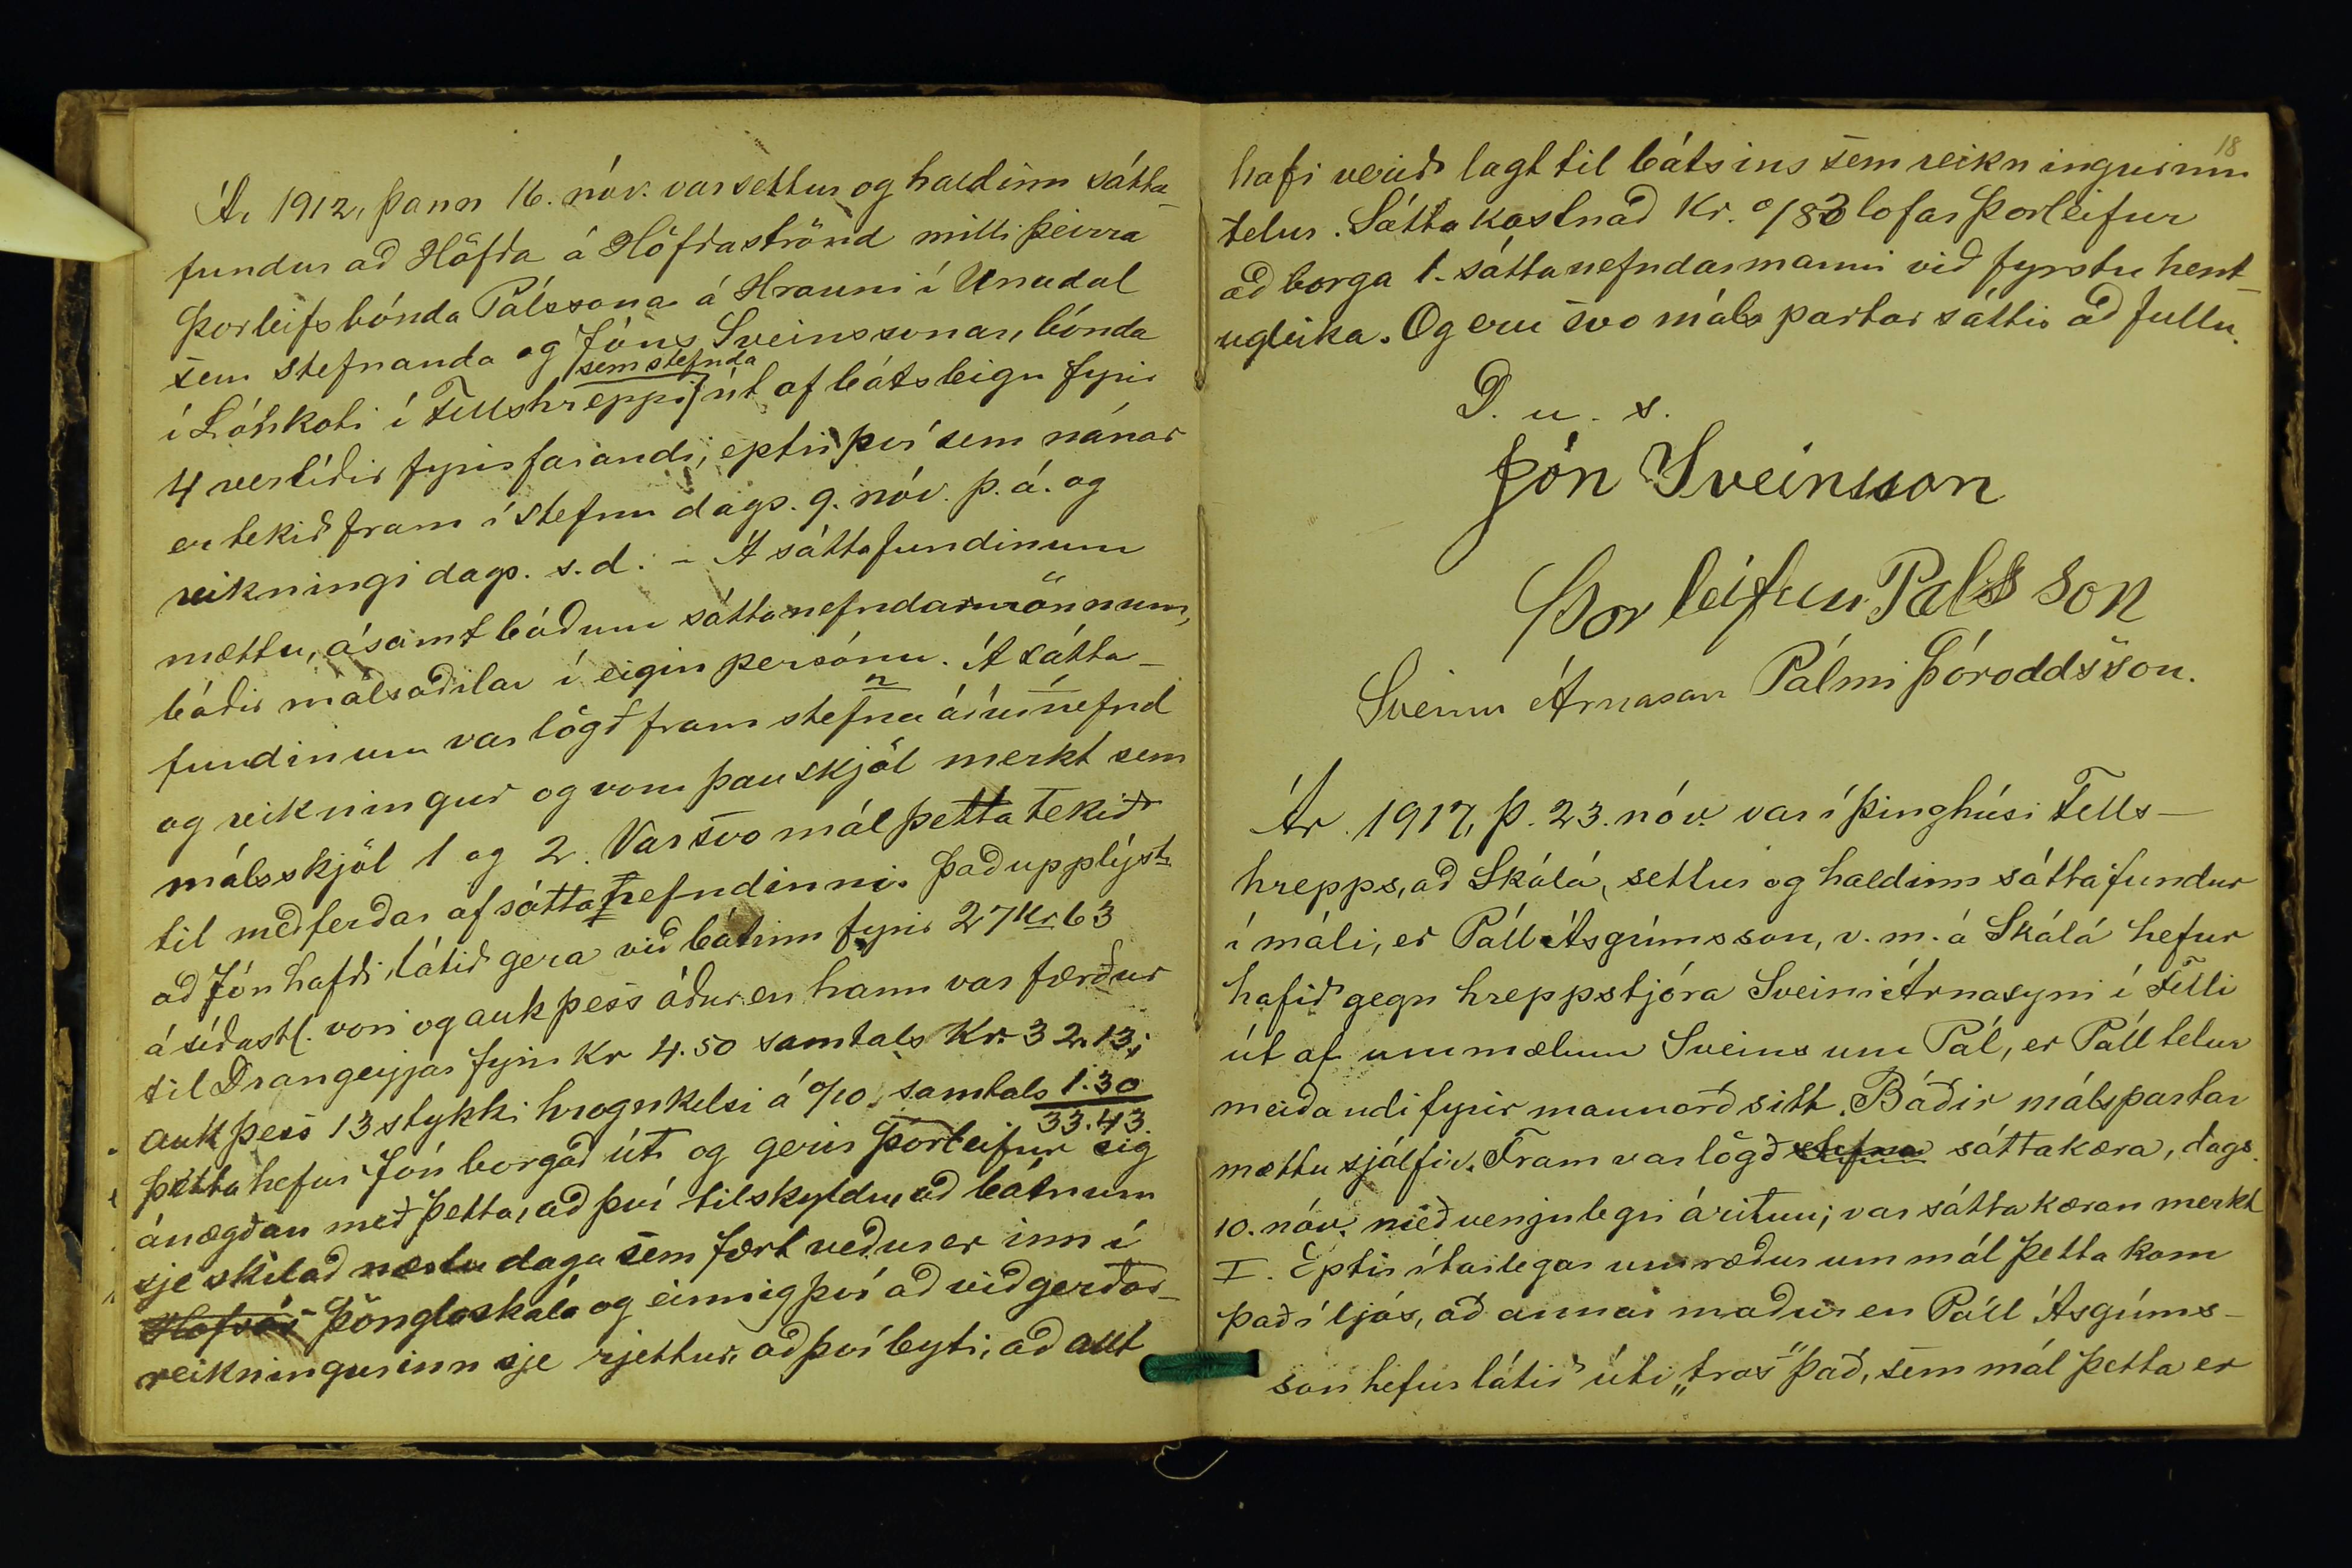 Ár 1912, þann 16. nóv. var settur og haldinn sátta-
fundur að Höfða á Höfðaströnd milli þeirra
Þorleifs bónda Pálssonar á Hrauni í Unadal
sem stefnanda og Jóns Sveinssonar, bónda
sem stefnda
í Lónkoti í Fellshreppi, út af bátsleigu fyrir
4 vertíðir fyrirfarandi, eptir því sem nánar
er tekið fram í stefnu dags. 9. nóv. þ.á. og
reikningi dags. s.d. - Á sáttafundinum
mættu, ásamt báðum sáttanefndarmönnum,
báðir málsaðilar í eigin persónu. Á sátta-
fundinum var lögð fram stefna áðurnefnd
og reikningur og voru þau skjöl merkt sem
málsskjöl 1 og 2. Var svo mál þetta tekið
til meðferðar af sáttanefndinni. Það upplýst
að Jón hafði látið gera við bátinn fyrir 27 kr 63
á síðastl. vori og auk þess áður en hann var færður
til Drangeyjar fyrir Kr 4.50 samtals Kr. 32.13;
auk þess 13 stykki hrognkelsi á 0/10, samtals 1.30
33.43.
þetta hefur Jón borgað út og gerir Þorleifur sig
ánægðan með þetta, að því tilskyldu, að bátnum
sje skilað næstu daga sem fært veður er inn í
Hofsós Þönglaskála og einnig því að viðgerðar-
reikningurinn sje rjettur, að því leyti, að allt
18
hafi verið lagt til bátsins sem reikningurinn
telur. Sáttakostnað Kr. 0/83 lofar Þorleifur
að borga 1. sáttanefndarmanni við fyrstu hent-
ugleika. Og eru svo málspartar sáttir að fullu.
D. u. s.
Jón Sveinsson
Þorleifur Palsson
Sveinn Árnason Pálmi Þóroddsson.
Ár 1917, þ. 23. nóv. var í þinghúsi Fells-
hrepps, að Skálá, settur og haldinn sáttafundur
í máli, er Páll Ásgrímsson, v.m. á Skálá hefur
hafið gegn hreppstjóra Sveini Árnasyni í Felli
út af ummælum Sveins um Pál, er Páll telur
meiðandi fyrir mannorð sitt. Báðir málspartar
mættu sjálfir. Fram var lögð stefna sáttakæra, dags.
10. nóv. með venjulegri áritun; var sáttakæran merkt
I. Eptir ítarlegar umræður um mál þetta kom
það í ljós, að annar maður en Páll Ásgríms-
son hefur látið úti „tros" það, sem mál þetta er